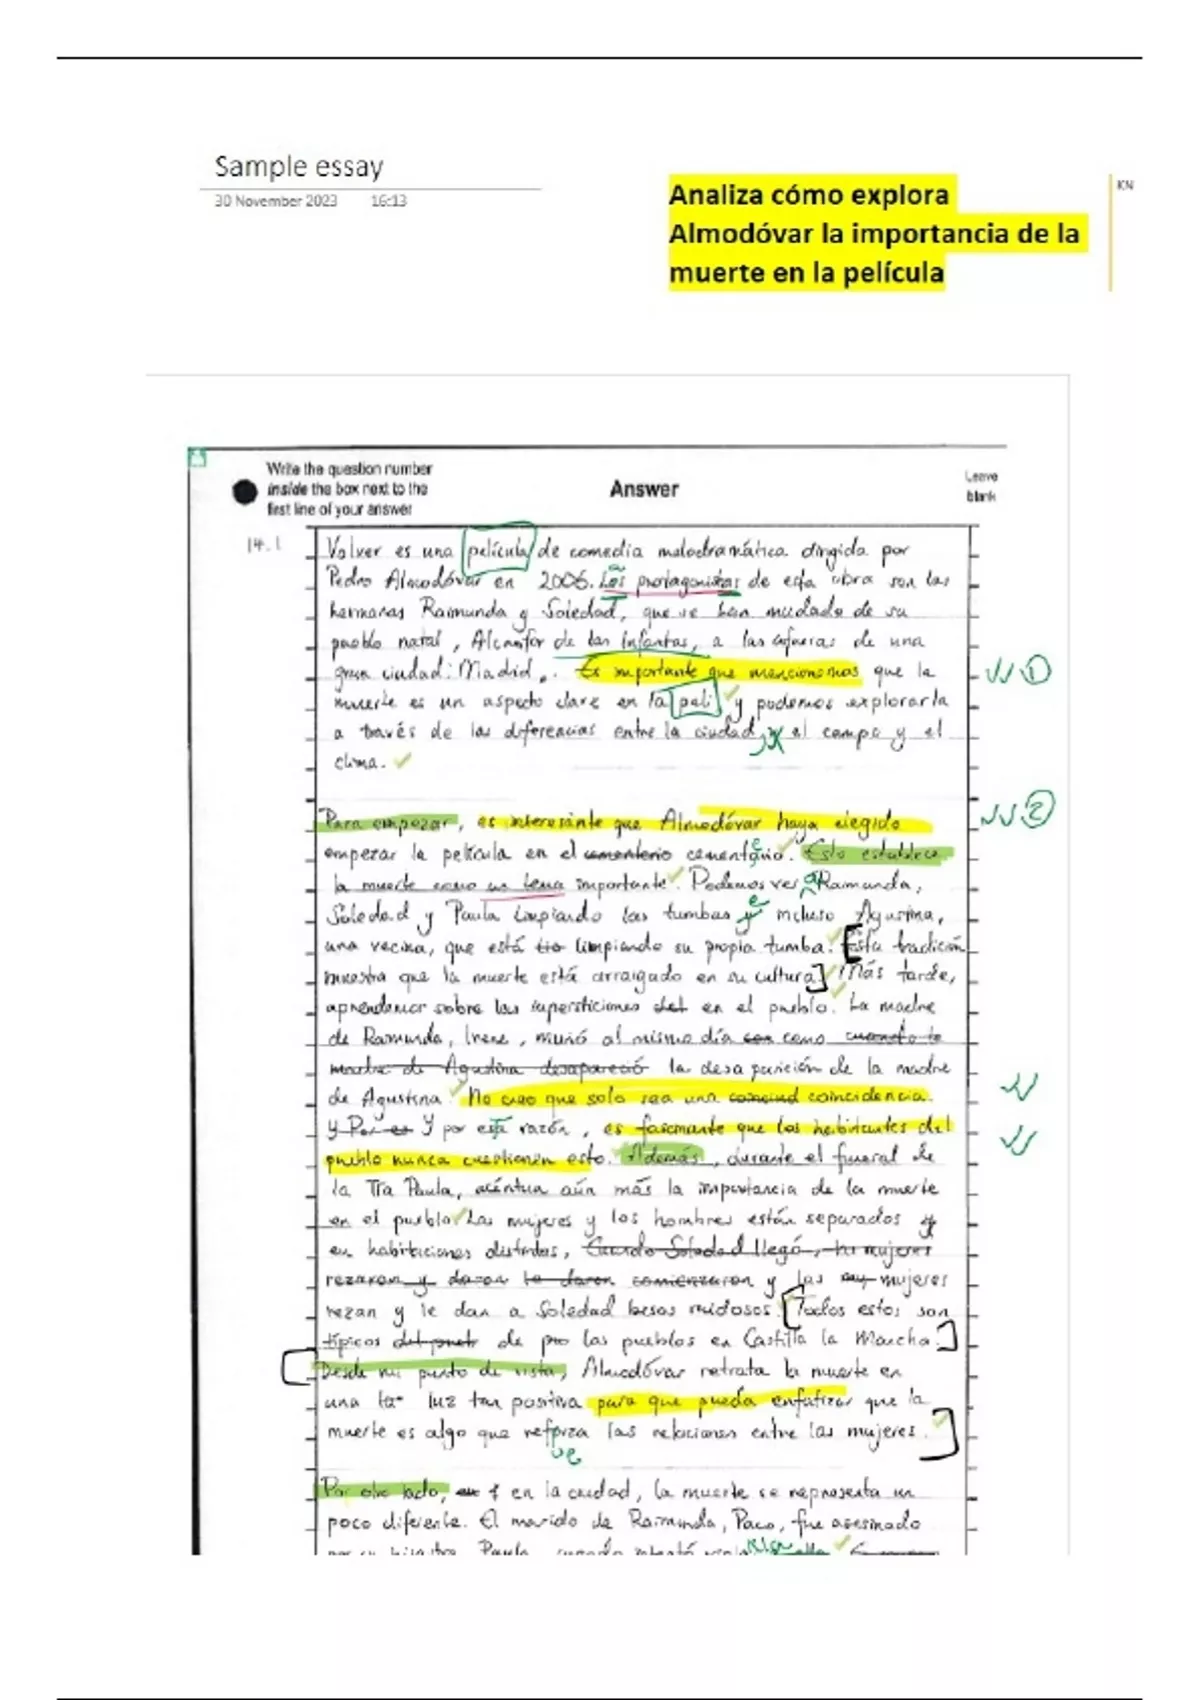 Sample essay
30 November 2023 16:13
Analiza cómo explora
Almodóvar la importancia de la
muerte en la película
KN
Write the question number
inside the box next to the
first line of your answer
Answer
Leave
blank
14.1
Volver es una película de comedia melodramática dirigida por
Pedro Almodóvar en 2006. Los protagonistas de esta obra son las
hermanas Raimunda y Soledad, que se han mudado de su
pueblo natal, Alcanfor de las Infantas, a las afueras de una
gran ciudad: Madrid. Es importante que mencionemos que la
muerte es un aspecto clave en la peli y podemos explorarla
a través de las diferencias entre la ciudad, y el campo y el
clima.
1
Para empezar, es interesante que Almodóvar haya elegido
empezar la película en el cementerio cementario. Esto establece
la muerte como un tema importante. Podemos ver a Raimunda,
Soledad y Paula limpiando las tumbas y e incluso Agustina,
una vecina, que está limpiando su propia tumba. Esta tradición
muestra que la muerte está arraigado en su cultura. Más tarde,
aprendemos sobre las supersticiones del en el pueblo. La madre
de Raimunda, Irene, murió al mismo día con como cuando la
madre de Agustina desapareció la desaparición de la madre
de Agustina. No creo que solo sea una coincidencia.
y Por es Y por esta razón, es fascinante que los habitantes del
pueblo nunca cuestionen esto. Además, durante el funeral de
la Tía Paula, acéntua aún más la importancia de la muerte
en el pueblo. Las mujeres y los hombres están separados y
en habitaciones distintas, Cuando Soledad llegó, las mujeres
rezaron y daron la daron comienzaron y las mujeres
rezan y le dan a Soledad besos ruidosos. Todos estos son
típicos del pueb de pro las pueblos en Castilla la Mancha.
Desde mi punto de vista, Almodóvar retrata la muerte en
una la luz tan positiva para que pueda enfatizar que la
muerte es algo que reforza las relaciones entre las mujeres.
ue
2
Por otro lado, en la ciudad, la muerte se representa un
poco diferente. El marido de Raimunda, Paco, fue asesinado
por su hijastra, Paula, cuando intentó